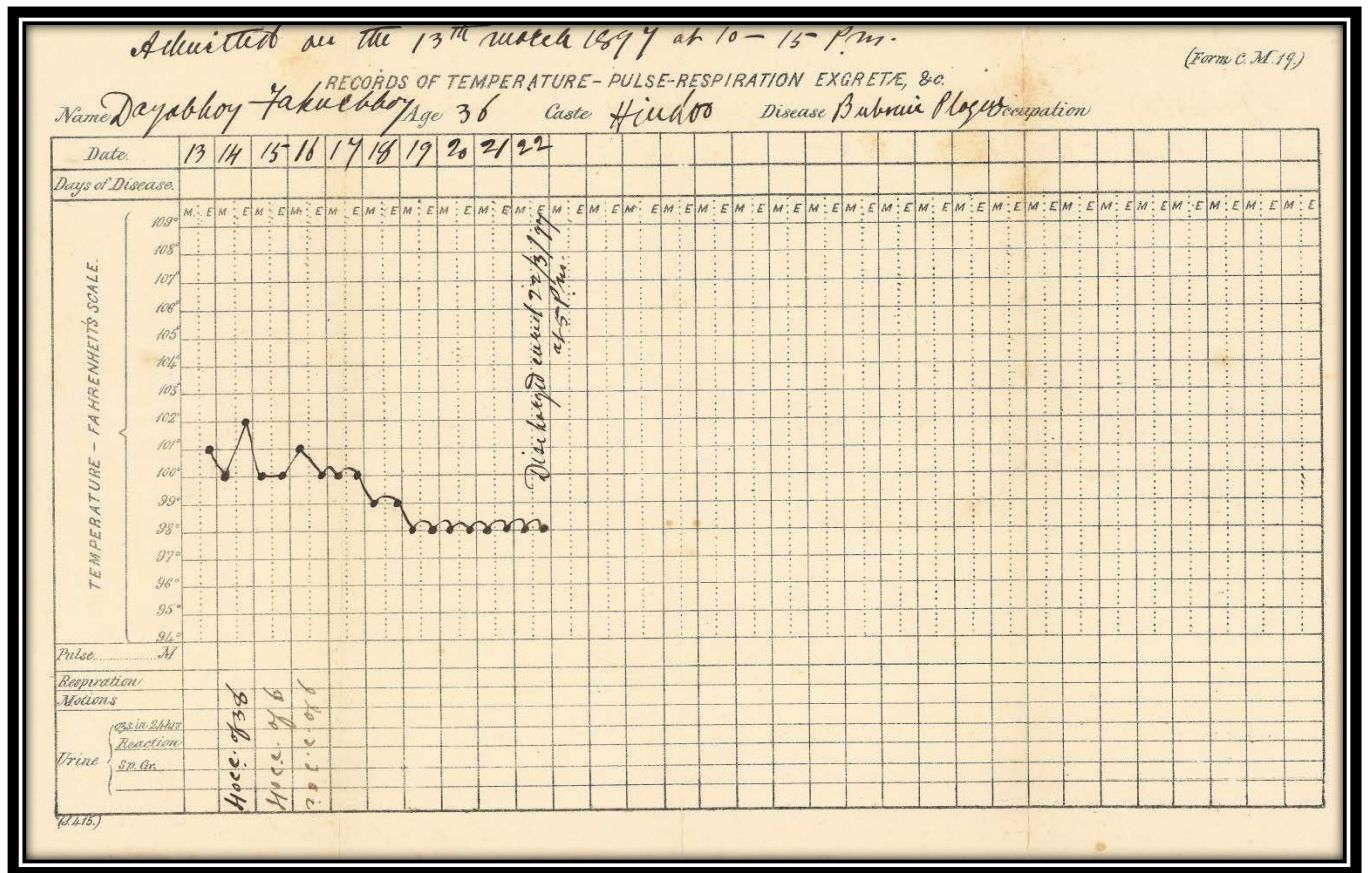 Admitted on the 13th March 1897 at 10-15 P.m.
(Form C. M. 19,)
RECORDS OF TEMPERATURE - PULSE-RESPIRATION EXGRETÆ, &c.
Name Dayabhoy Age 36 Caste Hindoo Disease Bubonic Plague Occupation
Date. 13 14 15 16 17 18 19 20 21 22
Days of Disease.
M E M E M E M E M E M E M E M E M E M E M E M E M E M E M E M E M E M E M E M E M E M E M E M E M E M E M E M E M E M E M E
TEMPERATURE - FAHRENHEIT'S SCALE.
109°
108°
107°
106°
105°
104°
103°
102°
101°
100°
99°
98°
97°
96°
95°
94°
Discharged cured 22/3/97
at 5 P.m.
Pulse M
Respiration
Motions
Urine
ozs. in 24 hrs
Reaction
Sp. Gr.
40 c.c. of 38
40 c.c. of 6
20 c.c. of 6
(J. 415.)